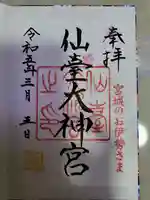 奉拝
宮城のお伊勢さま
仙臺大神宮
令和五年三月五日